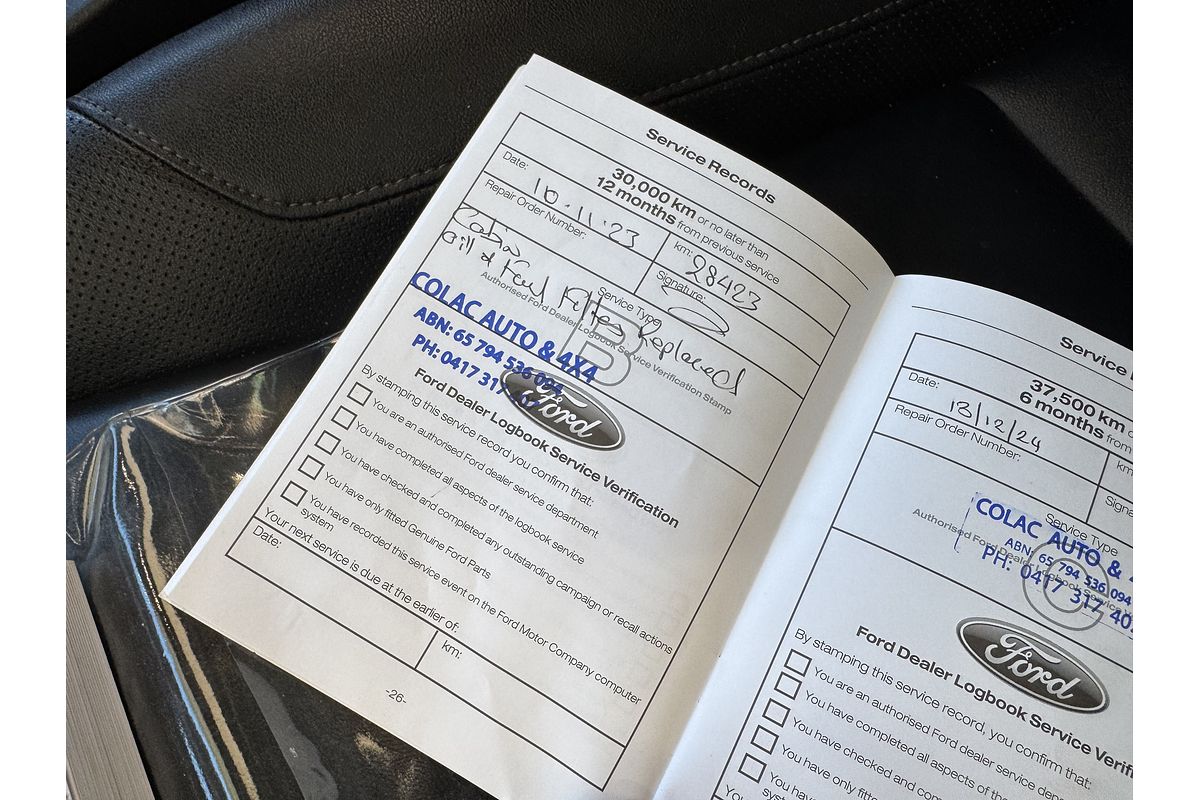 Service Records
30,000 km or no later than
12 months from previous service
Date: 10.11.23
km: 28423
Repair Order Number:
Signature:
Cabin
Oil & Fuel Filters Replaced
Service Type
Authorised Ford Dealer Logbook Service Verification Stamp
B
COLAC AUTO & 4X4
ABN: 65 794 536 094
PH: 0417 317
Ford
Ford Dealer Logbook Service Verification
By stamping this service record you confirm that:
You are an authorised Ford dealer service department
You have completed all aspects of the logbook service
You have checked and completed any outstanding campaign or recall actions
You have only fitted Genuine Ford Parts
You have recorded this service event on the Ford Motor Company computer
system
Your next service is due at the earlier of:
Date:
km:
-26-
Service
37,500 km
6 months from
Date: 13/12/24
km
Repair Order Number:
Service Type
Authorised Ford Dealer Logbook Service
C
COLAC AUTO &
ABN: 65 794 536 094
PH: 0417 317 40
Ford
Ford Dealer Logbook Service
By stamping this service record, you confirm that:
You are an authorised Ford dealer service
You have completed all aspects of the
You have checked and
You have only fitted
You have
system
Your